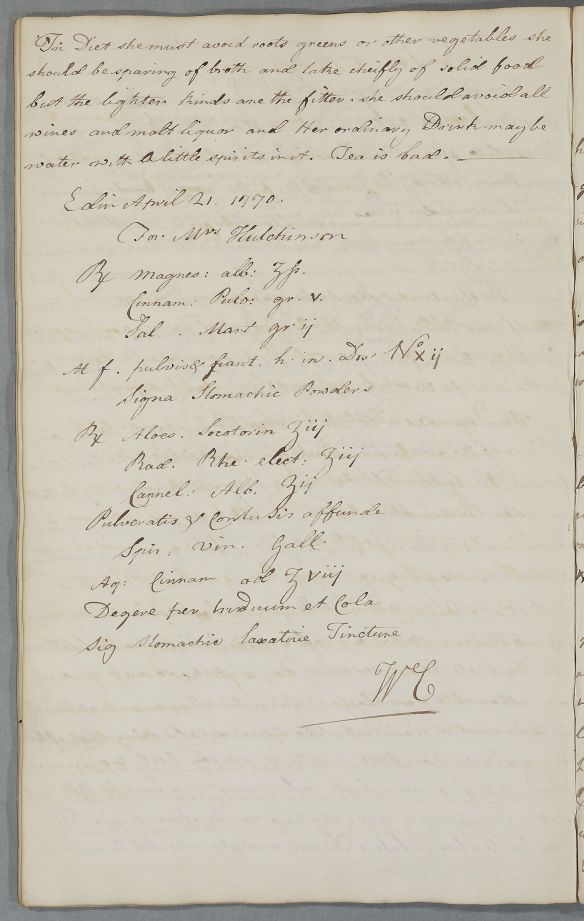 In Diet she must avoid roots greens or other vegetables she
should be sparing of broth and take cheifly of solid food
but the lighter kinds are the fitter. she should avoid all
wines and malt liquor and Her ordinary Drink may be
water with a little spirits in it. Tea is bad. _
Edin April 21. 1770.
For Mrs Hutchinson
℞ magnes: alb: ʒſs.
Cinnam: Pulv: gr. v.
Sal . Mart gr ij
M f. pulvis & fiant. h. in. Dos No xij
Signa Stomachic Powders
℞ Aloes. Socotorin ʒiij
Rad. Rhe. elect: ʒiij
Cannel: Alb. ʒij
Pulveratis & Contusis affunde
Spir. Vin. Gall.
Aq: Cinnam ad ℥ viij
Degere per triduum et Cola
Sig Stomachic laxative Tincture
WC